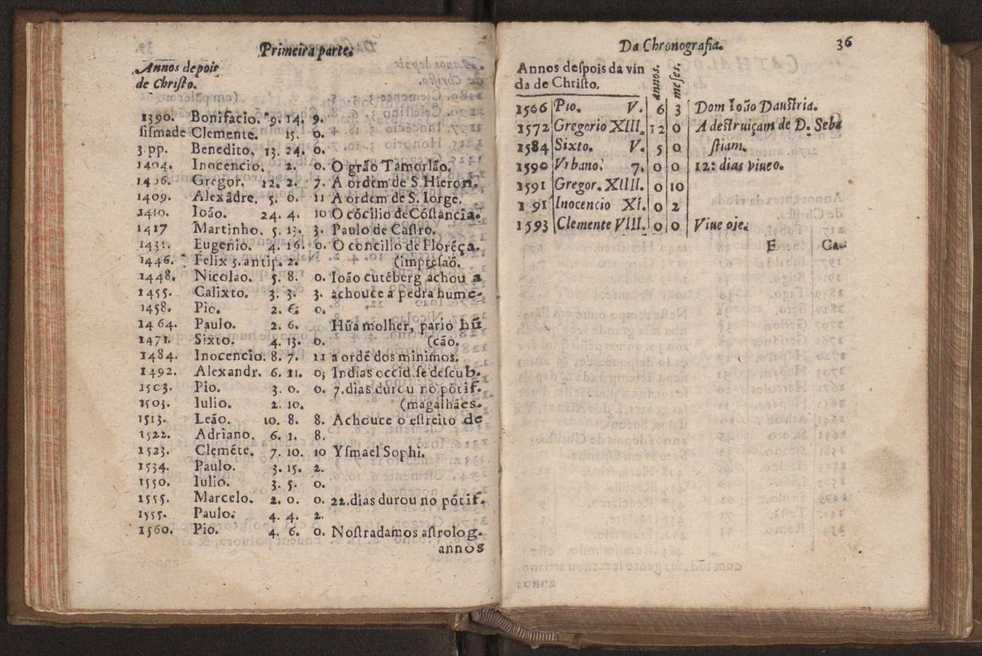 Primeira parte.
Annos depois
de Christo.
1390. Bonifacio. 9. 14. 9.
sismade Clemente. 15. 0.
3. pp. Benedito. 13. 24. 0.
1404. Inocencio. 2. 0. O grão Tamorlão.
1406. Gregor. 12. 2. 7. A ordem de S. Hieron.
1409. Alexãdre. 5. 0. 11 A ordem de S. Iorge.
1410. Ioão. 24. 4. 10 O cõcilio de Cõstancia.
1417 Martinho. 5. 13. 3. Paulo de Castro.
1431. Eugenio. 4. 16. 0. O concilio de Florẽça.
1446. Felix 5. antip. 2. (impresaõ.
1448. Nicolao. 5. 8. 0. Ioão cutẽberg achou a
1455. Calixto. 3. 3. 3. achouce a pedra hume-
1458. Pio. 2. 6. 0.
1464. Paulo. 2. 6. Hũa molher, pario hũ
1471. Sixto. 4. 13. 0. (cão.
1484. Inocencio. 8. 7. 11 a ordẽ dos minimos.
1492. Alexandr. 6. 11. 0; Indias occid. se descub.
1503. Pio. 3. 0. 0. 7. dias durou no põtif.
1503. Iulio. 2. 10. (magalhães.
1513. Leão. 10. 8. 8. Achouce o estreito de
1522. Adriano. 6. 1. 8.
1523. Clemẽte. 7. 10. 10 Ysmael Sophi.
1534. Paulo. 3. 15. 2.
1550. Iulio. 3. 5. 0.
1555. Marcelo. 2. 0. 0. 22. dias durou no põtif.
1555. Paulo. 4. 4. 2.
1560. Pio. 4. 6. 0. Nostradamos astrolog.
annos
Da Chronografia. 36
Annos despois da vin
da de Christo. annos. meses.
1566 Pio. V. 6 3 Dom Ioão Daustria.
1572 Gregorio XIII. 12 0 A destruiçam de D. Seba
1584 Sixto. V. 5 0 stiam.
1590 Vrbano. 7. 0 0 12. dias viueo.
1591 Gregor. XIIII. 0 10
1 91 Inocencio XI. 0 2
1593 Clemente VIII. 0 0 Viue oje.
E Ca-